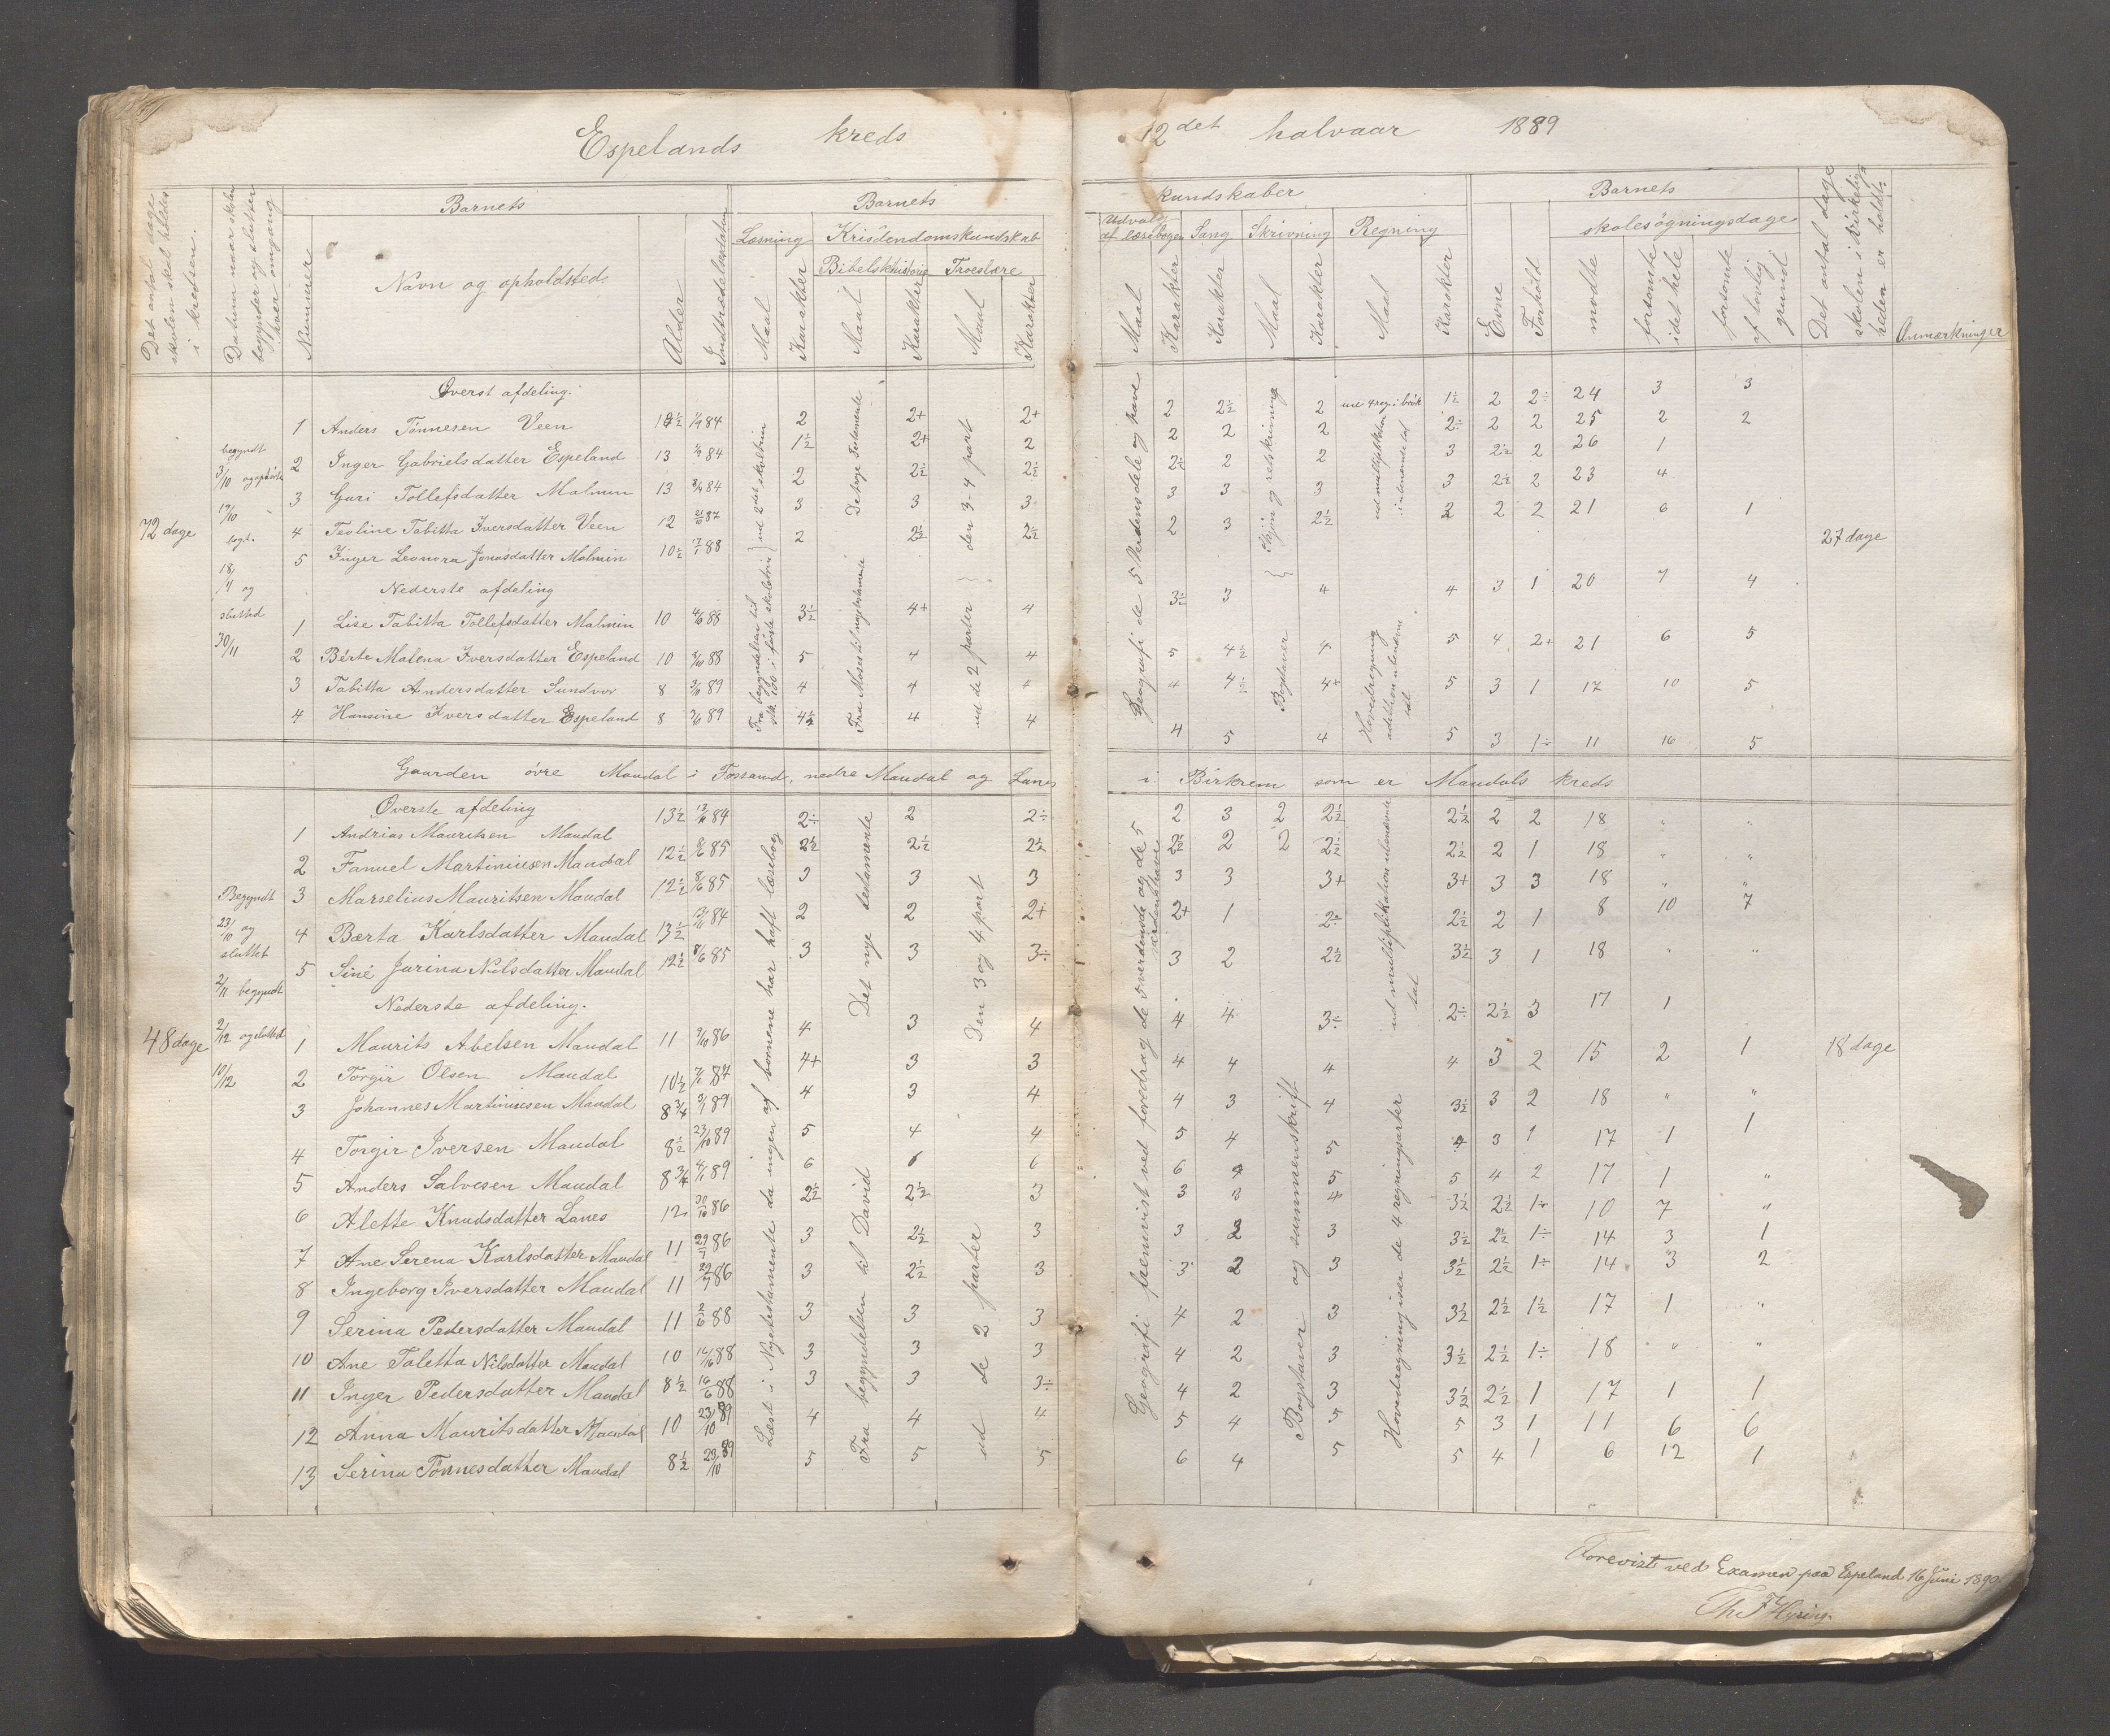 Espelands kreds 12det halvaar 1889
Det antal dage skolen skal holdes i kredsen.
Datum naar skolen begynder og slutter hver omgang
Nummer
Barnets
Navn og opholdsted.
Alder
Indtrædelsesdatum
Barnets kundskaber
Læsning
Maal
Karakter
Kristendomskundskab
Bibelskhistorie
Maal
Karakter
Troeslære
Maal
Karakter
Udvalg af læsebogen
Maal
Karakter
Sang
Karakter
Skrivning
Maal
Karakter
Regning
Maal
Karakter
Barnets
Evne
Forhold
skolesøgningsdage
mødte
forsømte i det hele
forsømte af lovlig grund
Det antal dage skolen i virkeligheden er holdt.
Anmærkninger
72 dage
begyndt 3/10 og ophørte
Øverst afdeling.
1 Anders Tønnesen Veen 2 2+ 2+ 2 2½ 2 1½ 2 2÷ 24 3 3
2 Inger Gabrielsdatter Espeland 13 84 1½ 2+ 2 2 2 2 2÷ 2 2 25 2 2
3 Guri Tollefsdatter Malmin 13 84 2 2½ 2½ 2½ 2 2 3 2½ 2 26 1
4 Teoline Tabitta Iversdatter Veen 12 87 3 3 3 3 3 3 3 2½ 2 23 4
5 Inger Leonora Jonasdatter Malmin 10½ 88 2 2½ 2½ 2 3 2½ 2 2 2 21 6 1
27 dage
Nederste afdeling
slutted 30/11
1 Lise Tabitta Tollefsdatter Malmin 10 88 3½ 4+ 4 3½ 3 4 4 3 1 20 7 4
2 Bérte Malena Iversdatter Espeland 10 88 5 4 4 5 4½ 4 5 4 2+ 21 6 5
3 Tabitta Andersdatter Sundvor 8 89 4 4 4 4 4½ 4+ 5 3 1 17 10 5
4 Hansine Iversdatter Espeland 8 89 4½ 4 4 4 5 4 5 3 1÷ 11 16 5
ud 2det skoletrin
Fra begyndelsen til stk 100 i første skoletrin
De toge Testamente
Fra Moses til nytestamente
den 3-4 part
ud de 2 parter
Geografi de 5 Verdensdele og have
Skjøn og retskrivning
Bogstaver
Hovedregning
Gaarden øvre Maudal i Fossand, nedre Maudal og Lanes i Birkrem som er Maudals kreds
48 dage
Begyndt 23/10 og sluttet 2/11 begyndt 2/12 og sluttet 10/12
Øverste afdeling
1 Andrias Mauritsen Maudal 13½ 84 2÷ 2 2÷ 2 3 2 2½ 2½ 2 2 18 " "
2 Fanuel Martiniusen Maudal 12½ 85 2½ 2½ 2½ 2½ 2 2 2½ 2½ 2 1 18 " "
3 Marselius Mauritsen Maudal 12½ 85 3 3 3 3 3 3+ 3+ 3 3 18 " "
4 Bærta Karlsdatter Maudal 13½ 84 2 2 2+ 2+ 1 2÷ 2½ 2 1 8 10 7
5 Siné Jurina Nilsdatter Maudal 12½ 85 3 3 3÷ 3 2 2½ 3½ 3 1 18 " "
Nederste afdeling.
1 Maurits Abelsen Maudal 11 86 4 3 4 4 4 3÷ 2÷ 2½ 3 17 1
2 Torgir Olsen Maudal 10½ 87 4+ 3 3 4 4 4 4 3 2 15 2 1
18 dage
3 Johannes Martiniusen Maudal 8¾ 89 4 3 4 4 3 4 3½ 3 2 18 " "
4 Torgir Iversen Maudal 8½ 23/10 89 5 4 4 5 4 5 4 3 1 17 1 1
5 Anders Salvesen Maudal 8¾ 89 6 6 6 6 4 5 5 4 2 17 1 "
6 Alette Knudsdatter Lanes 12 30/10 86 2½ 2½ 3 3 3 4 3½ 2½ 1÷ 10 7 "
7 Ane Serena Karlsdatter Maudal 11 29/7 86 3 2½ 3 3 2 3 3½ 2½ 1÷ 14 3 1
8 Ingeborg Iversdatter Maudal 11 29/7 86 3 2½ 3 3 2 3 3½ 2½ 1÷ 14 3 2
9 Serina Pedersdatter Maudal 11 88 3 3 3 4 2 3 3½ 2½ 1½ 17 1 "
10 Ane Taletta Nilsdatter Maudal 10 88 3 3 3 4 2 3 3½ 2½ 1÷ 18 " "
11 Inger Pedersdatter Maudal 8½ 16/6 88 3 3 3÷ 4 2 3 3½ 2½ 1 17 1 1
12 Anna Mauritsdatter Maudal 10 23/10 89 4 4 4 5 4 5 5 3 1 11 6 6
13 Serina Tønnesdatter Maudal 8½ 23/10 89 5 5 5 6 4 5 5 4 1 6 12 1
Læst i Nyetestamente da ingen af børnene har haft læsebog
Det nye testamente
Fra begyndelsen til David
Den 3 og 4 part
ud de 2 parter
Geografi fremvist ved foredrag de 5 verdensde og de 5 verdenshave
Bogstaver og sammenskrift
ud multiplikation ubenævnte tal
Hovedregning især de 4 regningsarter
Forevist ved Examen paa Espeland 16 Juni 1890